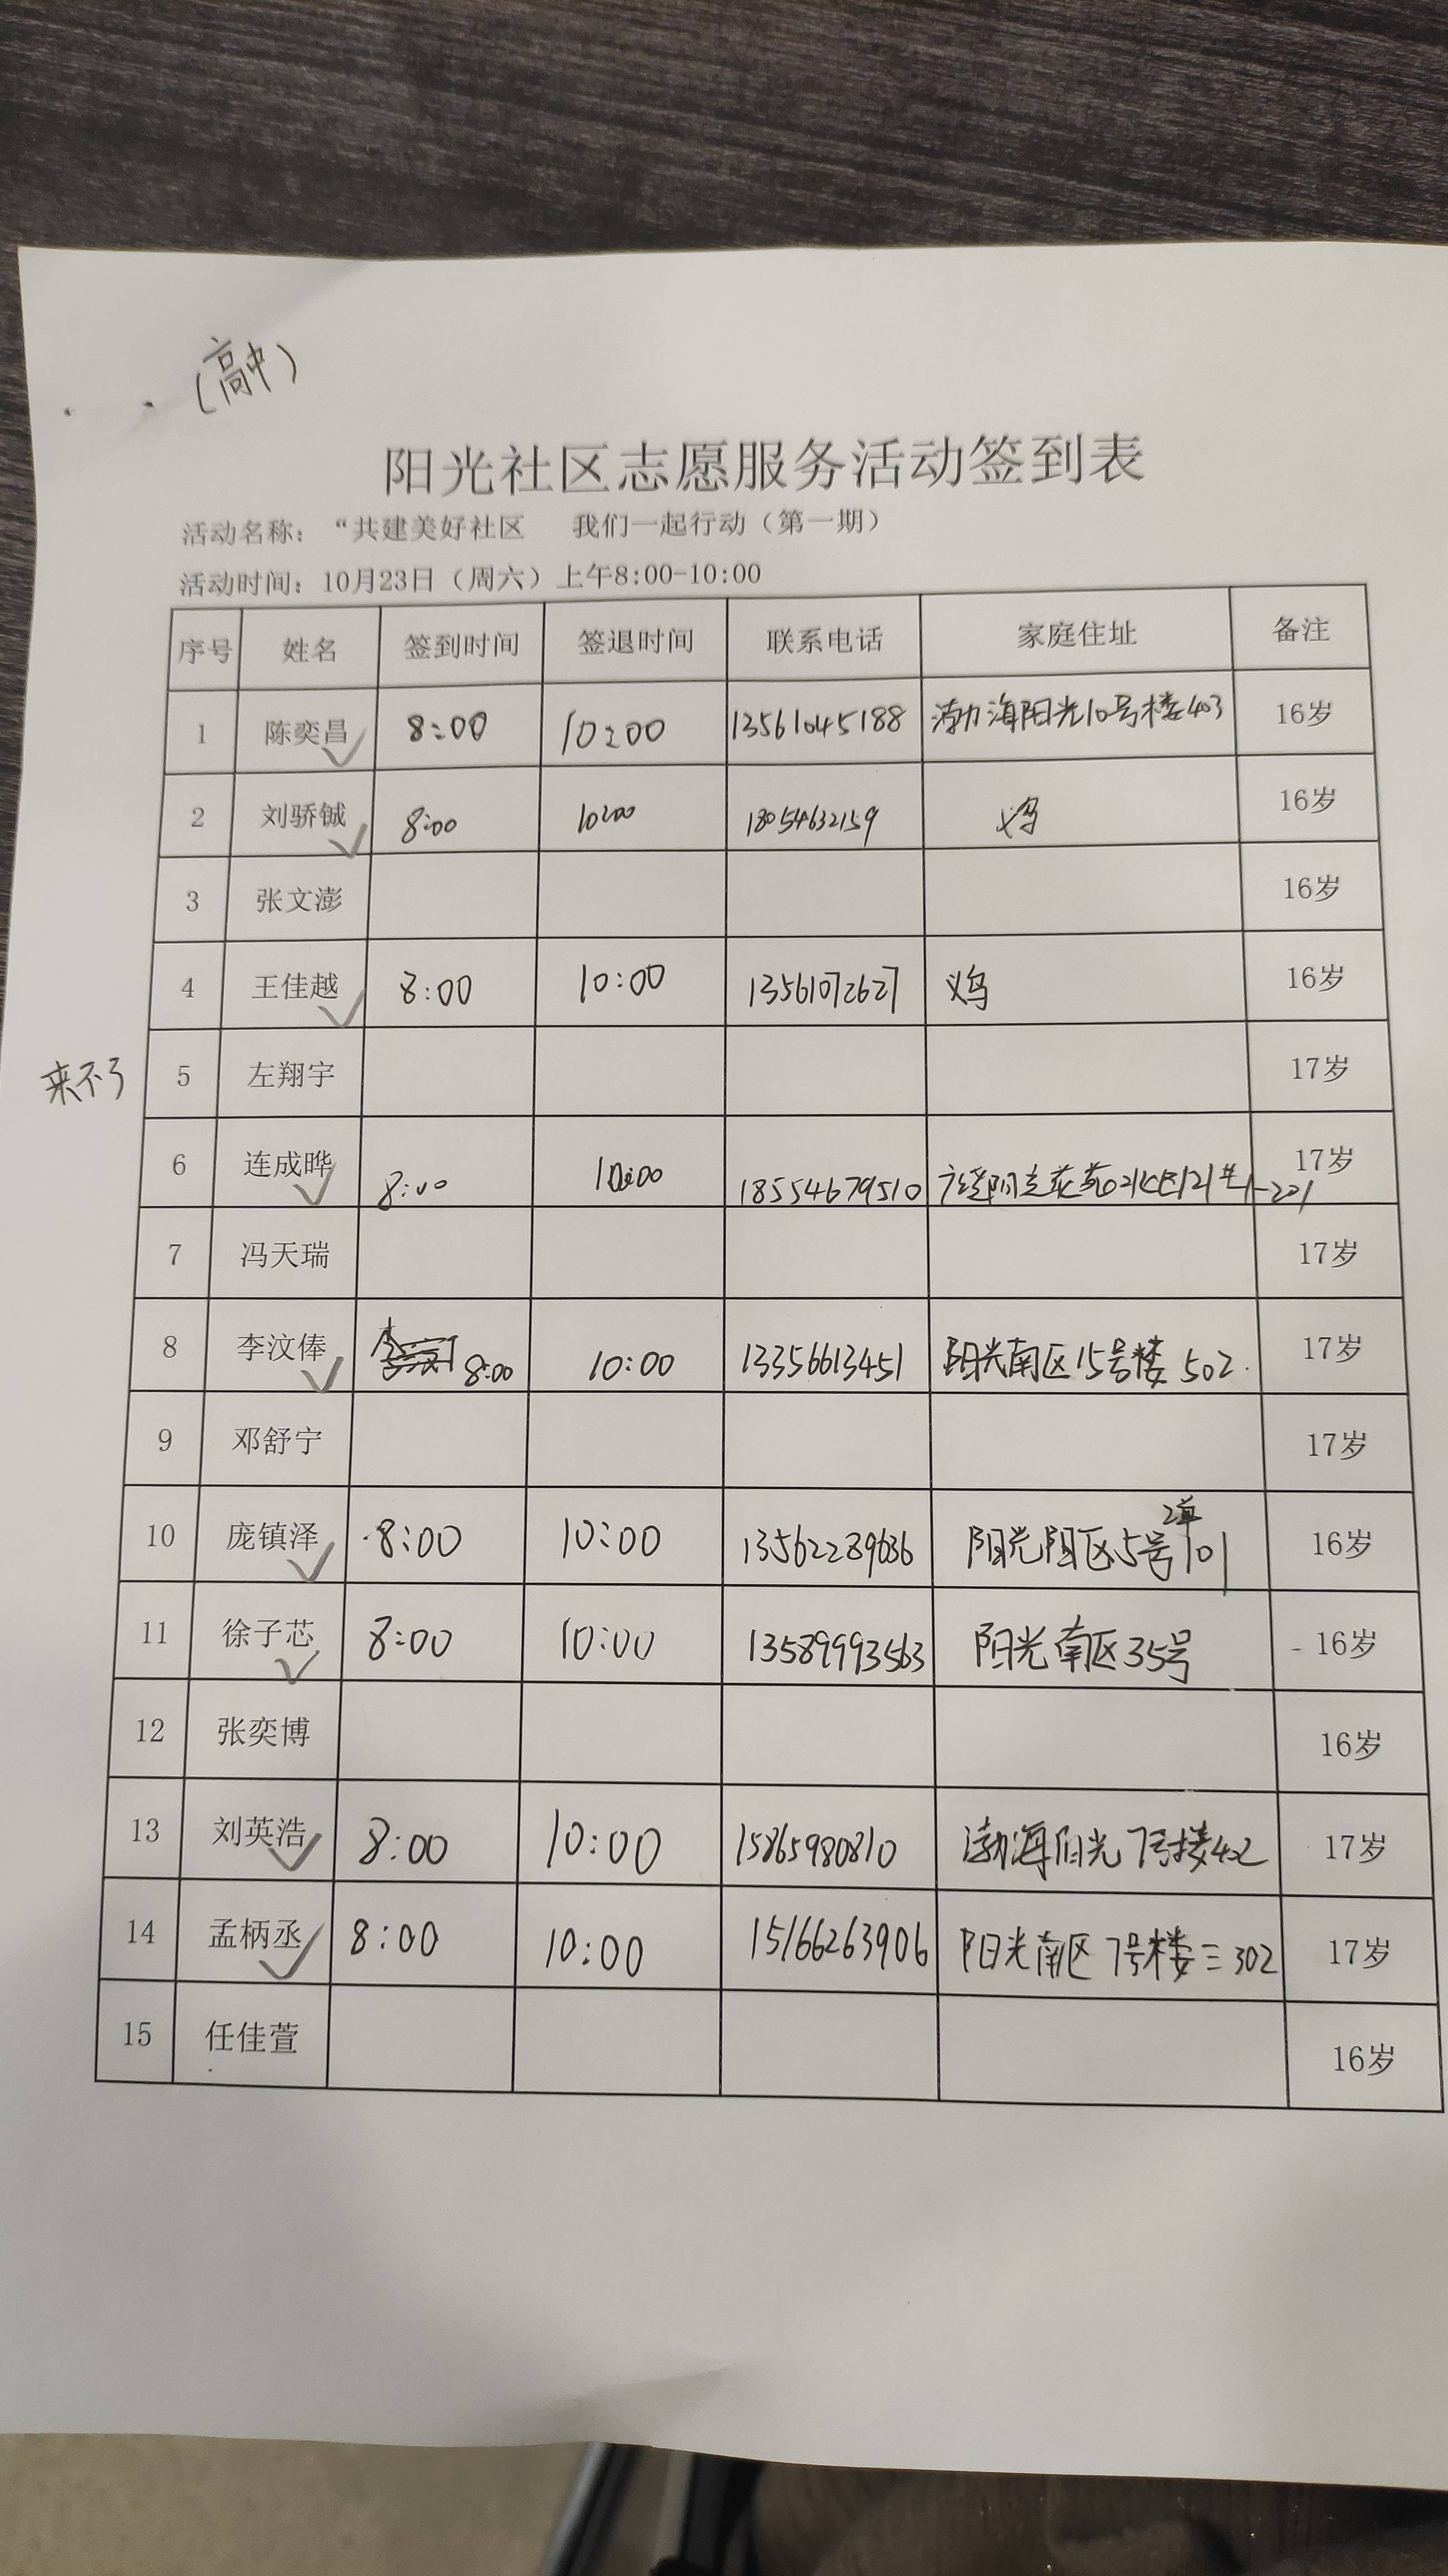 （高中）
阳光社区志愿服务活动签到表
活动名称：“共建美好社区 我们一起行动（第一期）
活动时间：10月23日（周六）上午8:00-10:00
序号 姓名 签到时间 签退时间 联系电话 家庭住址 备注
1 陈奕昌 8:00 10:00 13561045188 渤海阳光10号楼403 16岁
2 刘骄铖 8:00 10:00 18054632159 义乌 16岁
3 张文澎 16岁
4 王佳越 8:00 10:00 13561072627 义乌 16岁
来不了 5 左翔宇 17岁
6 连成晔 8:00 10:00 18554679510 17岁
7 冯天瑞 17岁
8 李汶俸 8:00 10:00 13356613451 阳光南区15号楼 502 17岁
9 邓舒宁 17岁
10 庞镇泽 8:00 10:00 13562289686 阳光阳区5号2单101 16岁
11 徐子芯 8:00 10:00 13589993563 阳光南区35号 16岁
12 张奕博 16岁
13 刘英浩 8:00 10:00 15865980810 渤海阳光 7号楼402 17岁
14 孟柄丞 8:00 10:00 15166263906 阳光南区 7号楼三302 17岁
15 任佳萱 16岁